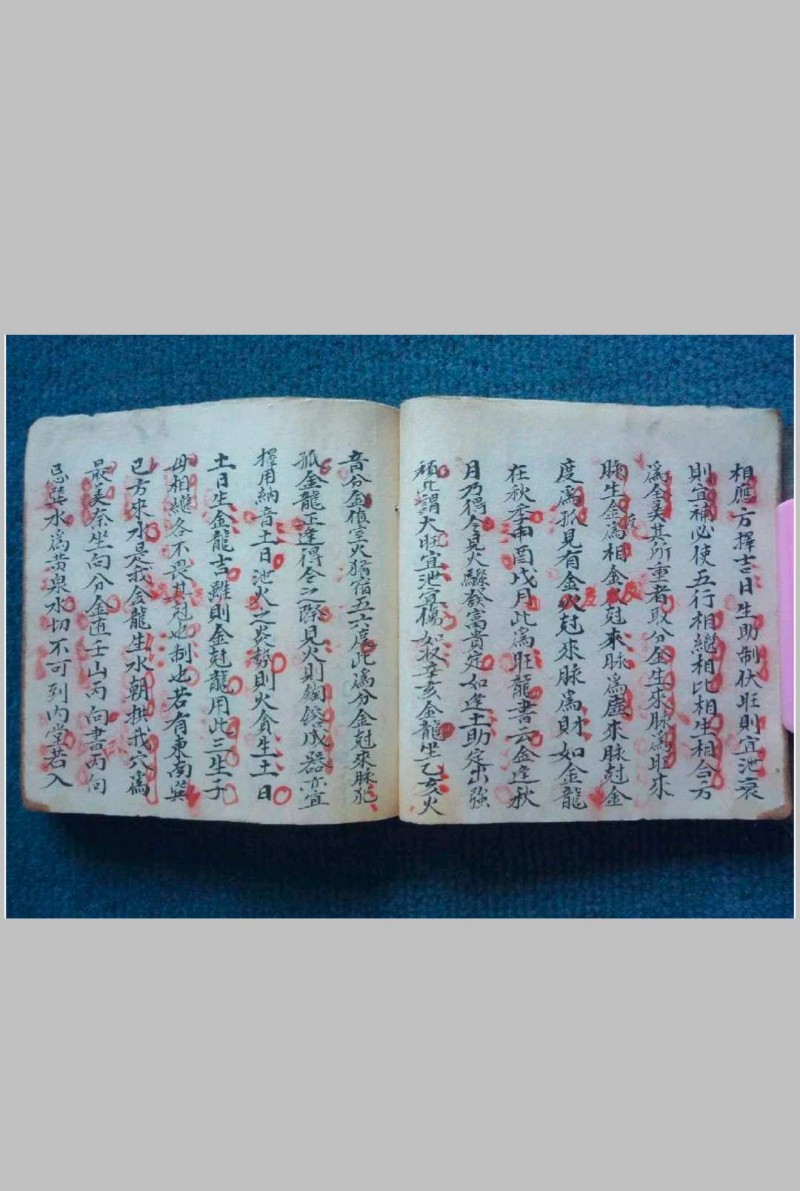 相應方擇吉日生助制伏旺則宜池衰
則宜補必使五行相繼相比相生相合方
為全美其所重者取分金生來脉為旺來
脉生金為相金尅來脉為來脉尅金
度為孤見有金尅來脉為財如金龍
在秋季甪酉戌月此為旺龍書云金逢秋
月乃得令見火驟發富貴定如逢土助定出強
頑此謂大旺宜池宜楊如取辛亥金龍坐乙亥火
音分金值室火猪宿五六度此為分金尅來脉犯
孤金龍正逢得令之際見火則煅鎔成器亦宜
擇用納音土日池火之炎勢則火貪生土日
土日生金龍吉雖則金尅龍用此三生子
母相繼各不畏其尅也制也若有東南巽
巳方來水是我金龍生水朝拱我穴為
最美奈坐向分金直壬山丙向書丙向
忌巽水為黃泉水切不可到內堂若入